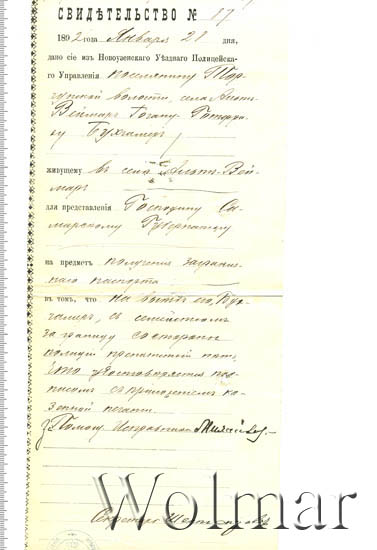 СВИДѢТЕЛЬСТВО № 17
1892 года Января 28 дня,
дано сіе изъ Новоузенскаго Уѣзднаго Полицейска-
го Управленія поселянину Тор-
гунской волости, села Альтъ-
Веймаръ Іогану Готфри-
ду Бухгамеръ
живущему въ селѣ Альтъ-Вей-
марѣ
для представленія Господину Са-
марскому Губернатору
на предметъ полученія загранич-
наго паспорта
въ томъ, что на выѣздъ его, Бух-
гамеръ, съ семействомъ
за границу со стороны
полиціи препятствій нѣтъ,
что удостовѣряется под-
писью съ приложеніемъ ка-
зенной печати.
Помощ. Исправника
Секретарь
Wolmar